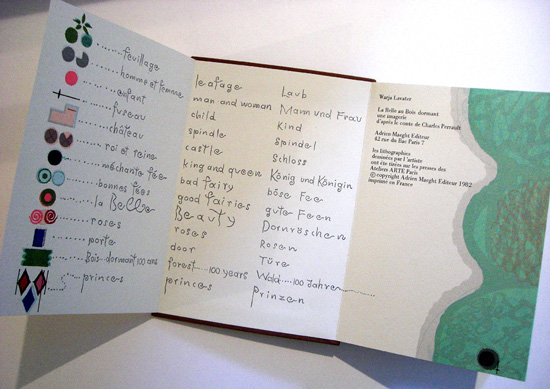 feuillage
homme et femme
enfant
fuseau
château
roi et reine
méchante fée
bonnes fées
la Belle
roses
porte
Bois..dormant 100 ans
princes
leafage
man and woman
child
spindle
castle
king and queen
bad fairy
good fairies
Beauty
roses
door
forest....100 years
princes
Laub
Mann und Frau
Kind
Spindel
Schloss
König und Königin
böse Fee
gute Feen
Dornröschen
Rosen
Türe
Wald.....100 Jahre
Prinzen
Warja Lavater
La Belle au Bois dormant
une imagerie
d'après le conte de Charles Perrault
Adrien Maeght Editeur
42 rue du Bac Paris 7
les lithographies
dessinées par l'artiste
ont été tirées sur les presses des
Ateliers ARTE Paris
© copyright Adrien Maeght Editeur 1982
imprimé en France